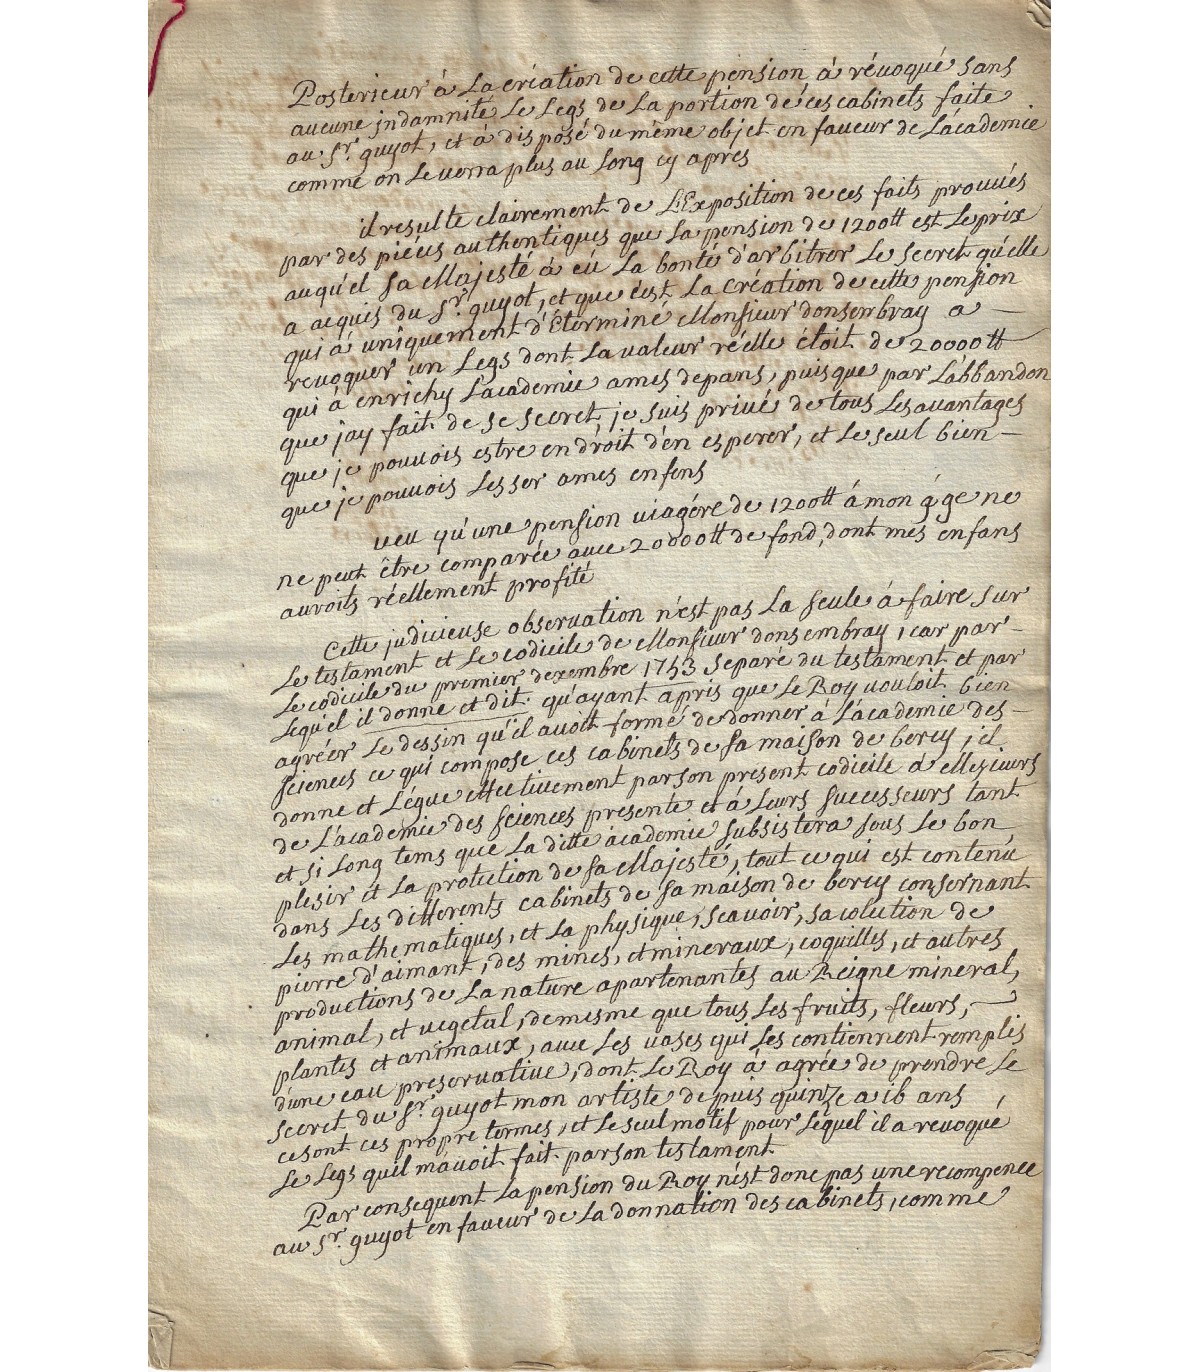 Posterieur à La création de cette pension à révoqué sans
aucune jndamnité Le Legs de La portion de ces cabinets faite
au Sr. guyot, et à disposé du même objet en faveur de L'académie
comme on Le verra plus au Long cy apres
il resulte clairement de L'Exposition de ces faits prouvés
par des piéces authentiques que La pension de 1200tt est Le prix
auquel sa Majesté à eû La bonté d'arbitrer Le secret qu'elle
a acquis du Sr. guyot, et que c'est La création de cette pension
qui à uniquement d'éterminé Monsieur donsembray a
revoquer un Legs dont La valeur réelle étoit de 20000tt
qui à enrichy L'academie ames depans, puisque par L'abbandon
que j'ay fait de se secret, je suis privé de tous Les avantages
que je pouvois estre en droit d'en esperer, et Le seul bien
que je pouvois Lesser ames enfens
veu qu'une pension viagére de 1200tt á mon âge ne
ne peut être comparée avec 20000tt de fond, dont mes enfans
auroits réellement profité
Cette judicieuse observation n'est pas La seule à faire sur
Le testament et Le codicile de Monsieur donsembray, car par
Le codicile du premier dexembre 1753 separé du testament et par
Lequ'el il donne et dit qu'ayant apris que Le Roy vouloit bien
agréer Le dessin qu'il avoitt formé de donner à L'académie des
sciences ce qui compose ces cabinets de sa maison de bercy, il
donne et Légue effectivement par son present codicile a Messieurs
de L'academie des sciences presente et à Leurs successeurs tant
et si Long tems que La ditte académie subsistera sous Le bon
plesir et La protection de sa Majesté, tout ce qui est contenu
dans Les differents cabinets de sa maison de bercy consernant
Les mathematiques, et La physique, scavoir, sa colection de
pierre d'aimant, des mines, et mineraux, coquilles, et autres
productions de La nature apartenantes au Reigne mineral,
animal, et vegetal, demesme que tous Les fruits, fleurs,
plantes et animaux, avec Les vases qui Les contiennent remplis
d'une eau preservative, dont Le Roy à agrée de prendre Le
secret du Sr. guyot mon artiste depuis quinze a 16 ans,
ce sont ces propre termes, et Le seul motif pour Léquel il a revoqué
Le Legs qu'il m'avoit fait par son testament
Par consequent La pension du Roy n'est donc pas une recompence
au Sr. guyot en faveur de La donnation des cabinets, comme